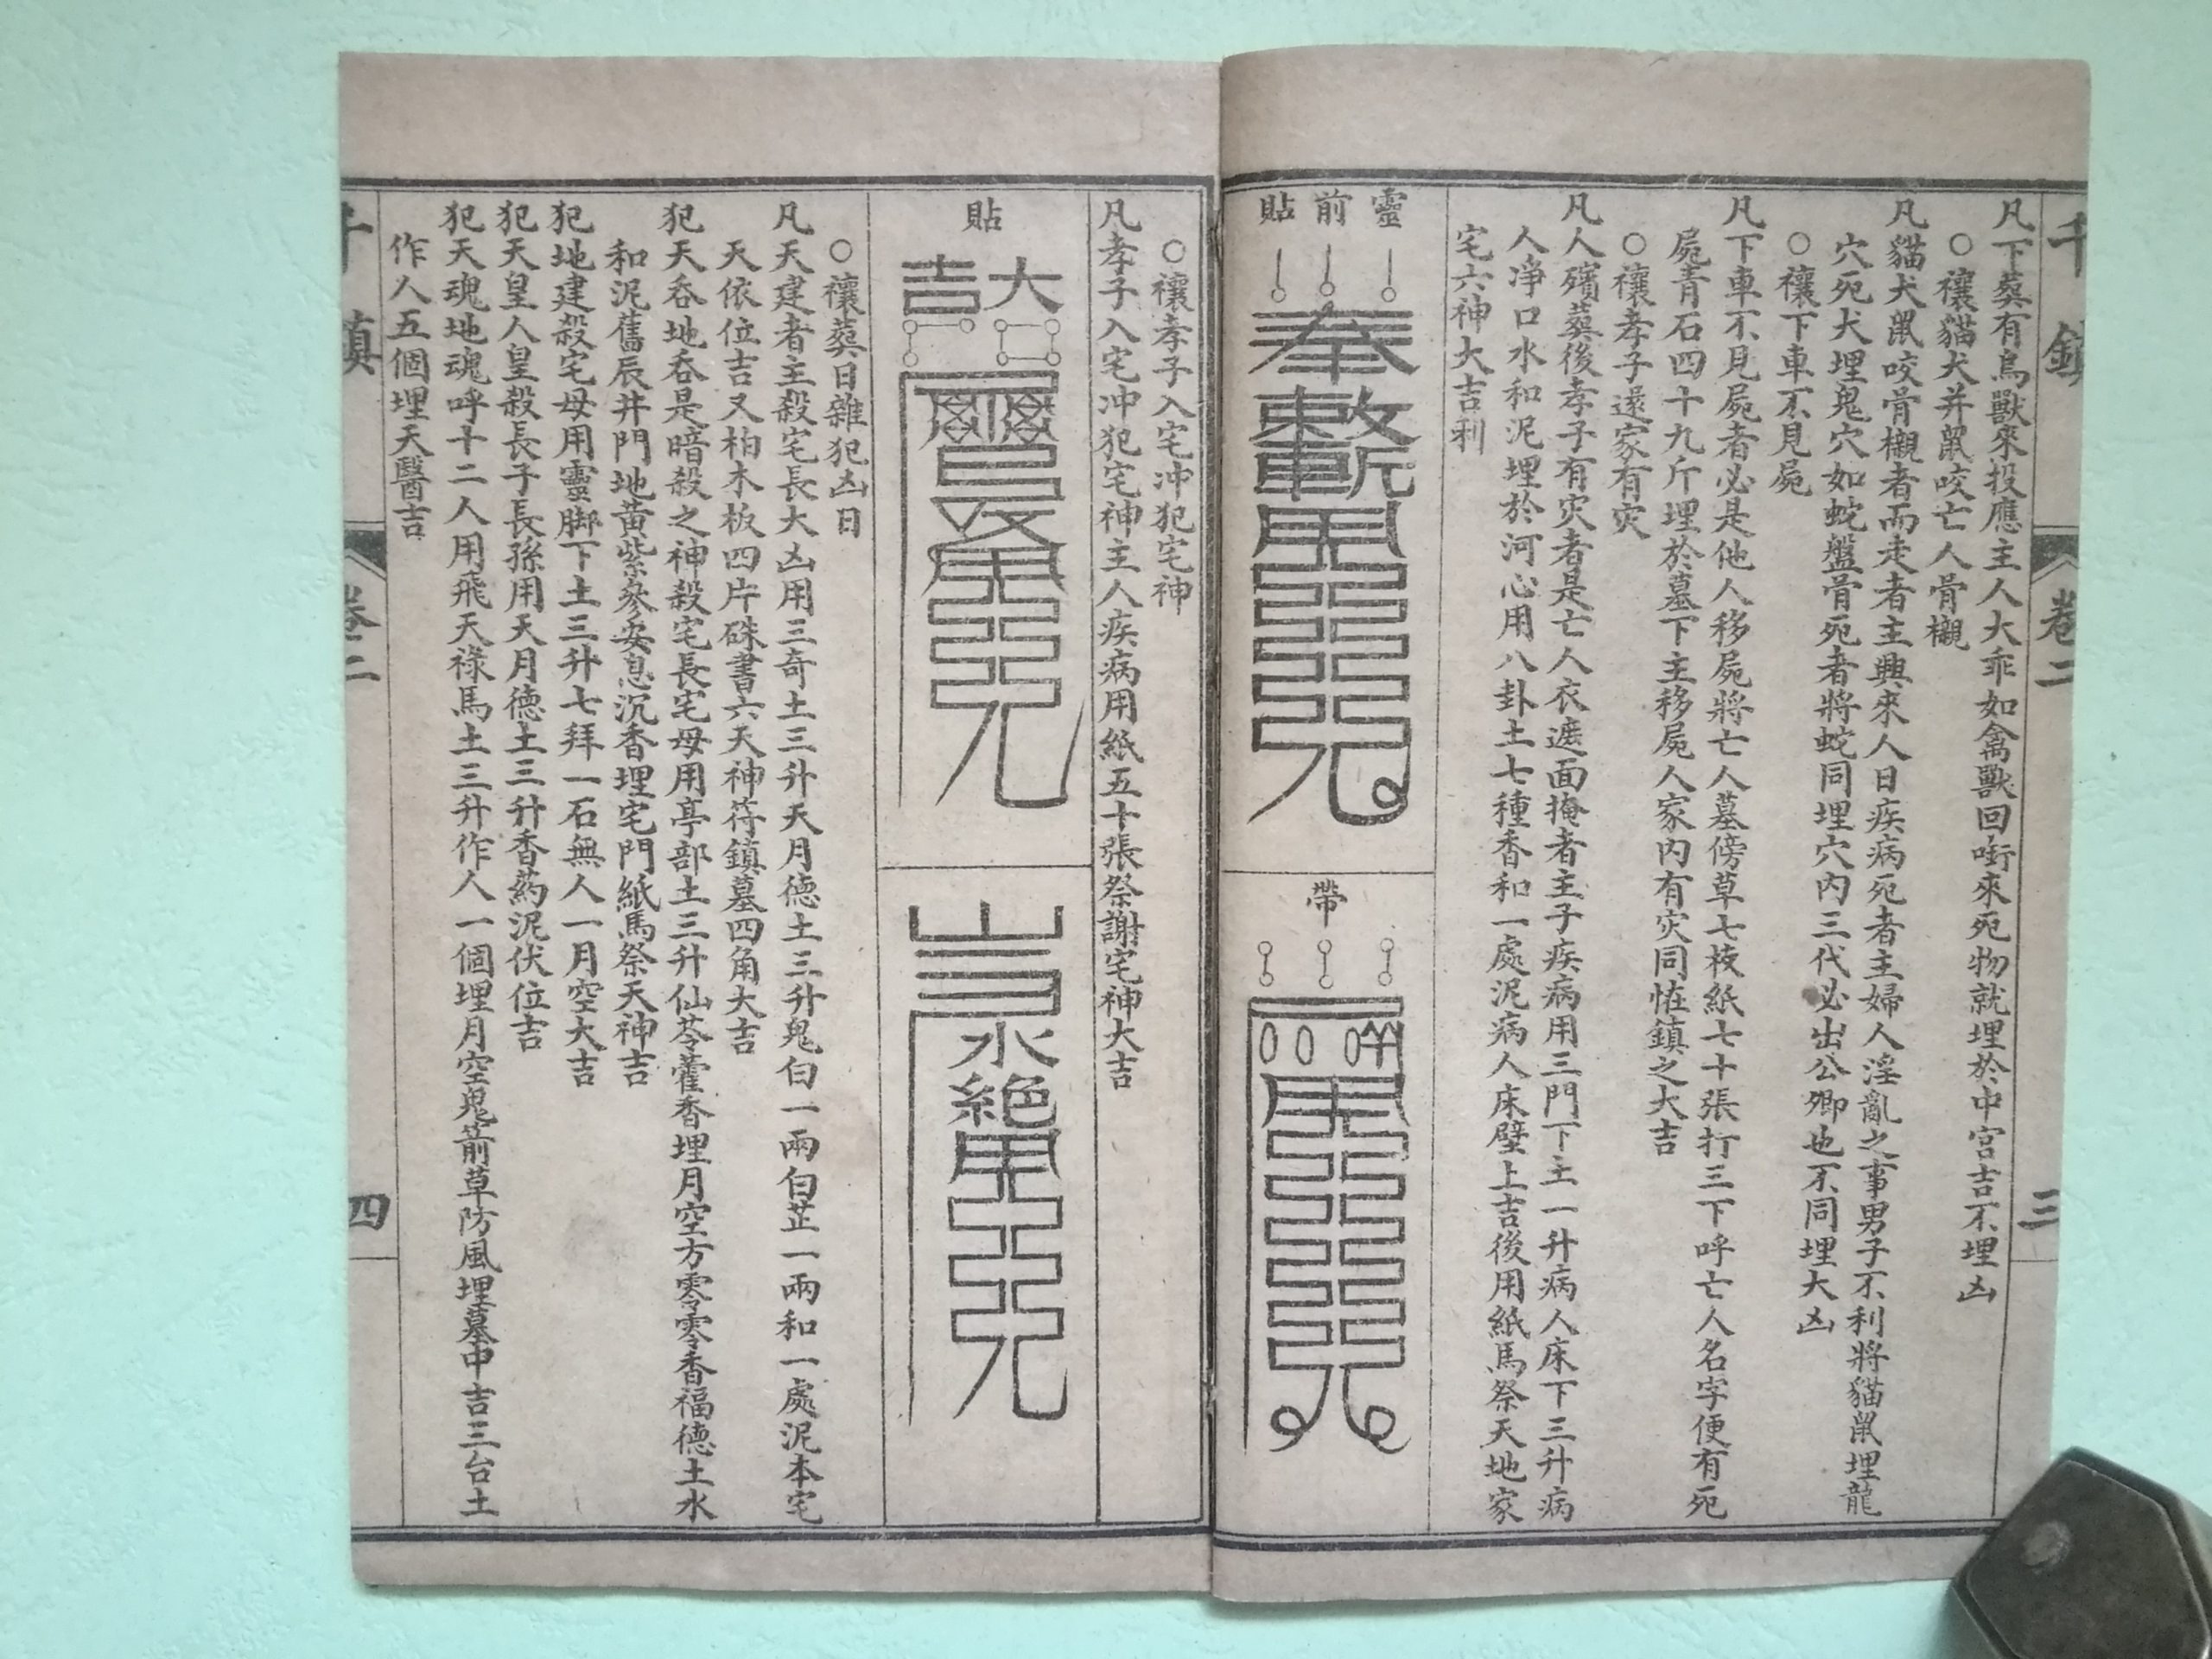 千鎮
卷二
三
凡下葬有鳥獸來投應主人大乖如禽獸回啣來死物就埋於中宮吉不埋凶
○禳貓犬并鼠咬亡人骨櫬
凡貓犬鼠咬骨櫬者而走者主興來人日疾病死者主婦人淫亂之事男子不利將貓鼠埋龍
穴死犬埋鬼穴如蛇盤骨死者將蛇同埋穴內三代必出公卿也不同埋大凶
○禳下車不見屍
凡下車不見屍者必是他人移屍將亡人墓傍草七枝紙七十張打三下呼亡人名字便有死
屍青石四十九斤埋於墓下主移屍人家內有灾同恠鎮之大吉
○禳孝子遠家有灾
凡人殯葬後孝子有灾者是亡人衣遮面掩者主子疾病用三門下土一升病人床下三升病
人净口水和泥埋於河心用八卦土七種香和一處泥病人床壁上吉後用紙馬祭天地家
宅六神大吉利
靈前貼
帶
○禳孝子入宅冲犯宅神
凡孝子入宅冲犯宅神主人疾病用紙五十張祭謝宅神大吉
貼
大吉
水
絕
○禳葬日雜犯凶日
凡天建者主殺宅長大凶用三奇土三升天月德土三升鬼臼一兩白芷一兩和一處泥本宅
天依位吉又柏木板四片硃書六天神符鎮墓四角大吉
犯天吞地吞是暗殺之神殺宅長宅母用亭部土三升仙苓藿香埋月空方零零香福德土水
和泥舊辰井門地黃紫參安息沉香埋宅門紙馬祭天神吉
犯地建殺宅母用靈脚下土三升七拜一石無人一月空大吉
犯天皇人皇殺長子長孫用天月德土三升香葯泥伏位吉
犯天魂地魂呼十二人用飛天祿馬土三升作人一個埋月空鬼箭草防風埋墓中吉三台土
作人五個埋天醫吉
千鎮
卷二
四